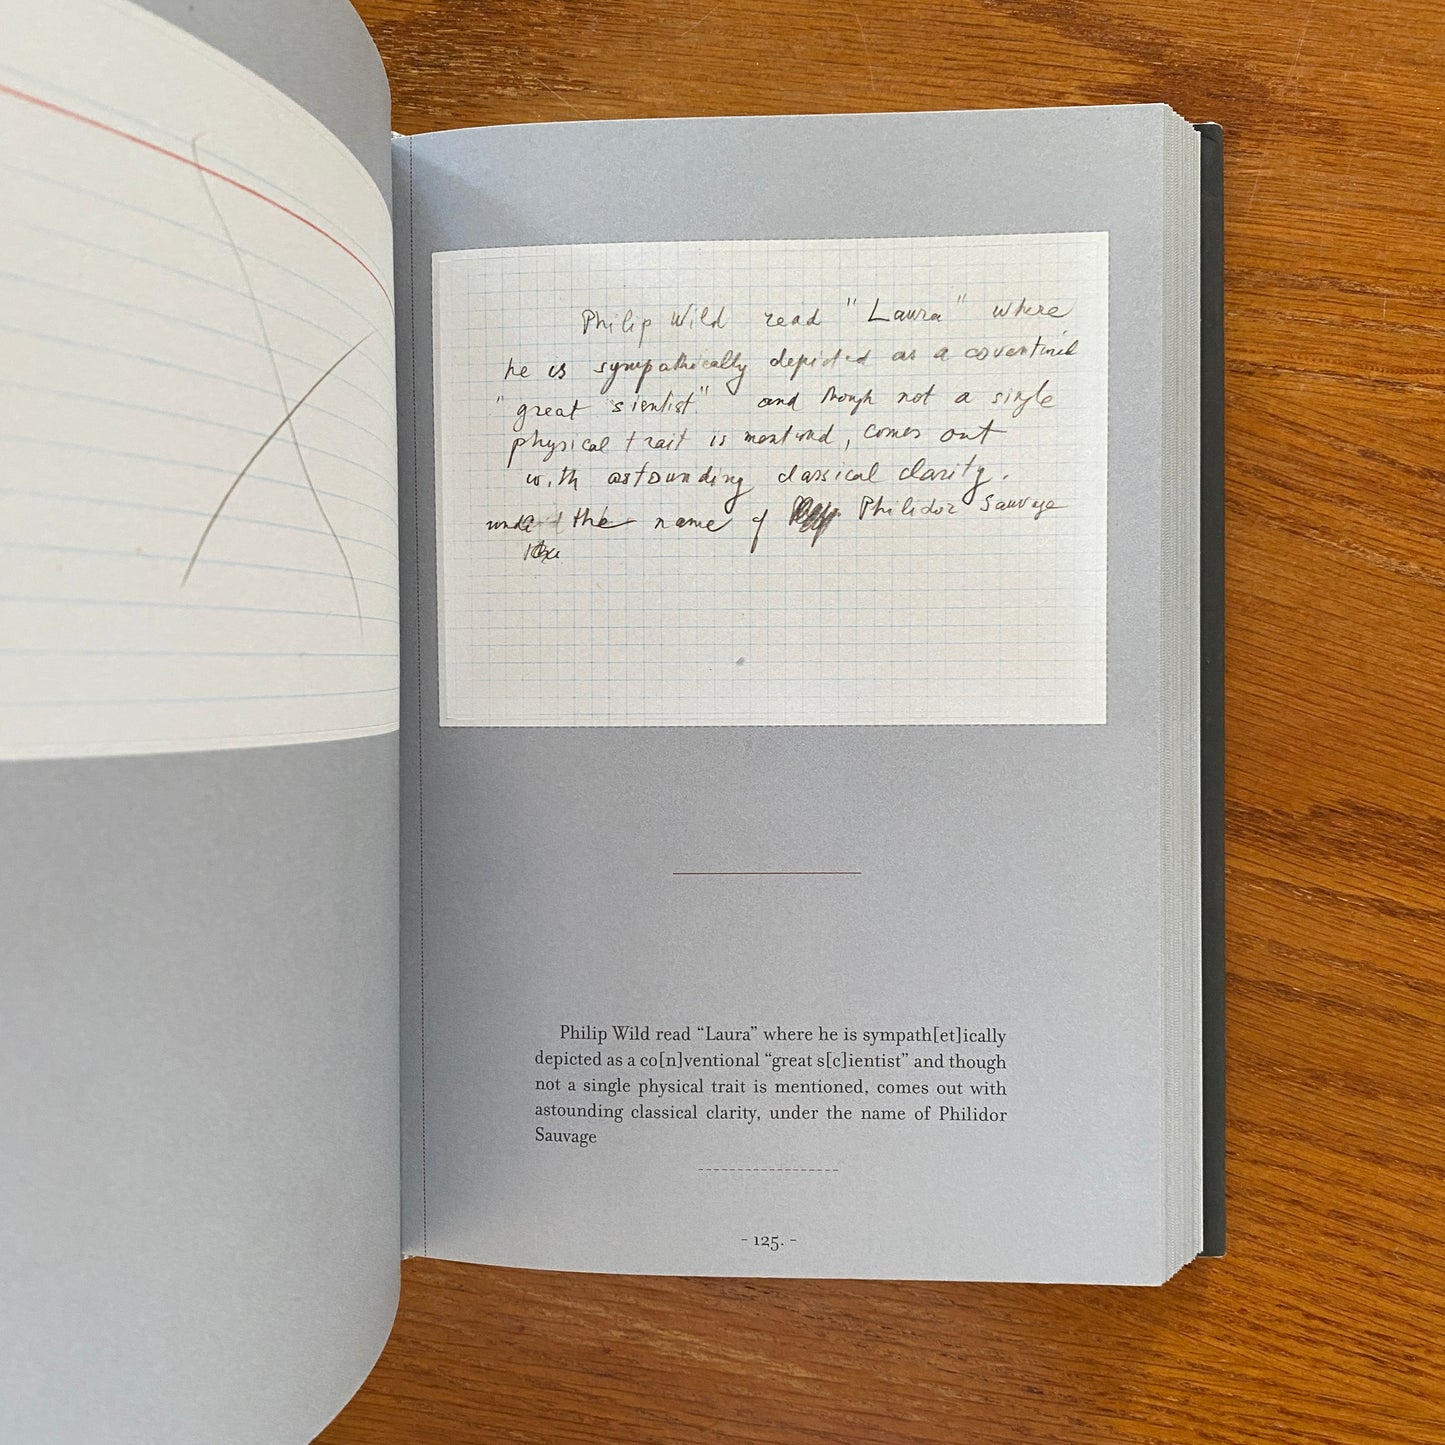 Philip Wild read "Laura" where
he is sympathically depicted as a coventinal
"great sientist" and though not a single
physical trait is mentiond, comes out
with astounding classical clarity.
under the name of Philidor Sauvage
Philip Wild read “Laura” where he is sympath[et]ically
depicted as a co[n]ventional “great s[c]ientist” and though
not a single physical trait is mentioned, comes out with
astounding classical clarity, under the name of Philidor
Sauvage
- 125. -